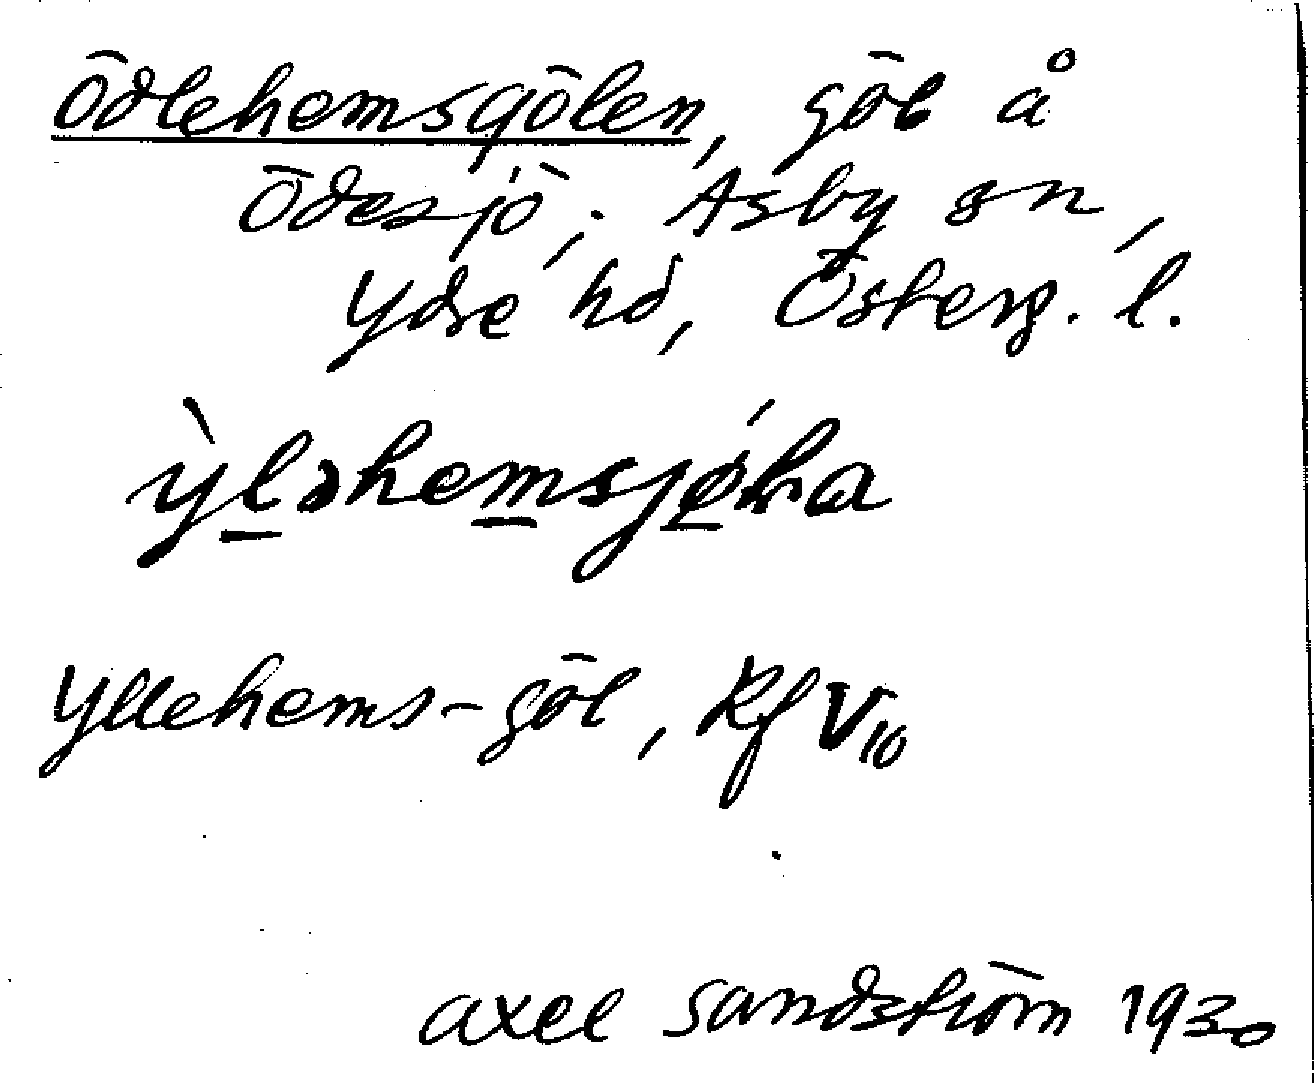 Ödlehemsgölen, göl å
Ödesjö, Asby sn,
Ydre hd, Österg. l.
Yllehems-göl, Rf V10
Axel Sandström 1930